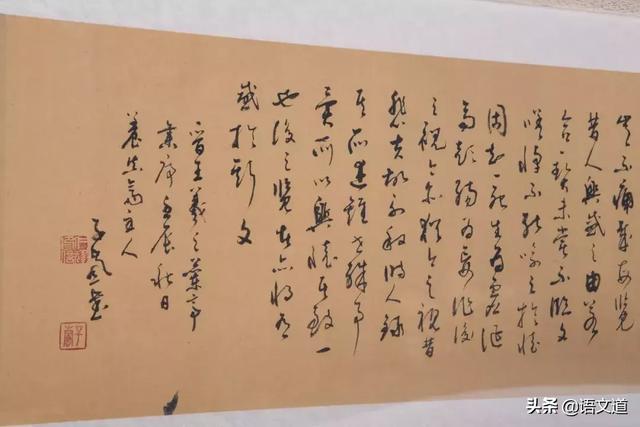 豈不痛哉每覽
昔人興感之由若
合一契未嘗不臨文
嗟悼不能喻之於懷
固知一死生為虛誕
齊彭殤為妄作後
之視今亦猶今之視昔
悲夫故列敘時人錄
其所述雖世殊事
異所以興懷其致一
也後之覽者亦將有
感於斯文
晉王羲之蘭亭
集序壬辰秋日
養真齋主人
子 書
头条 @语文道